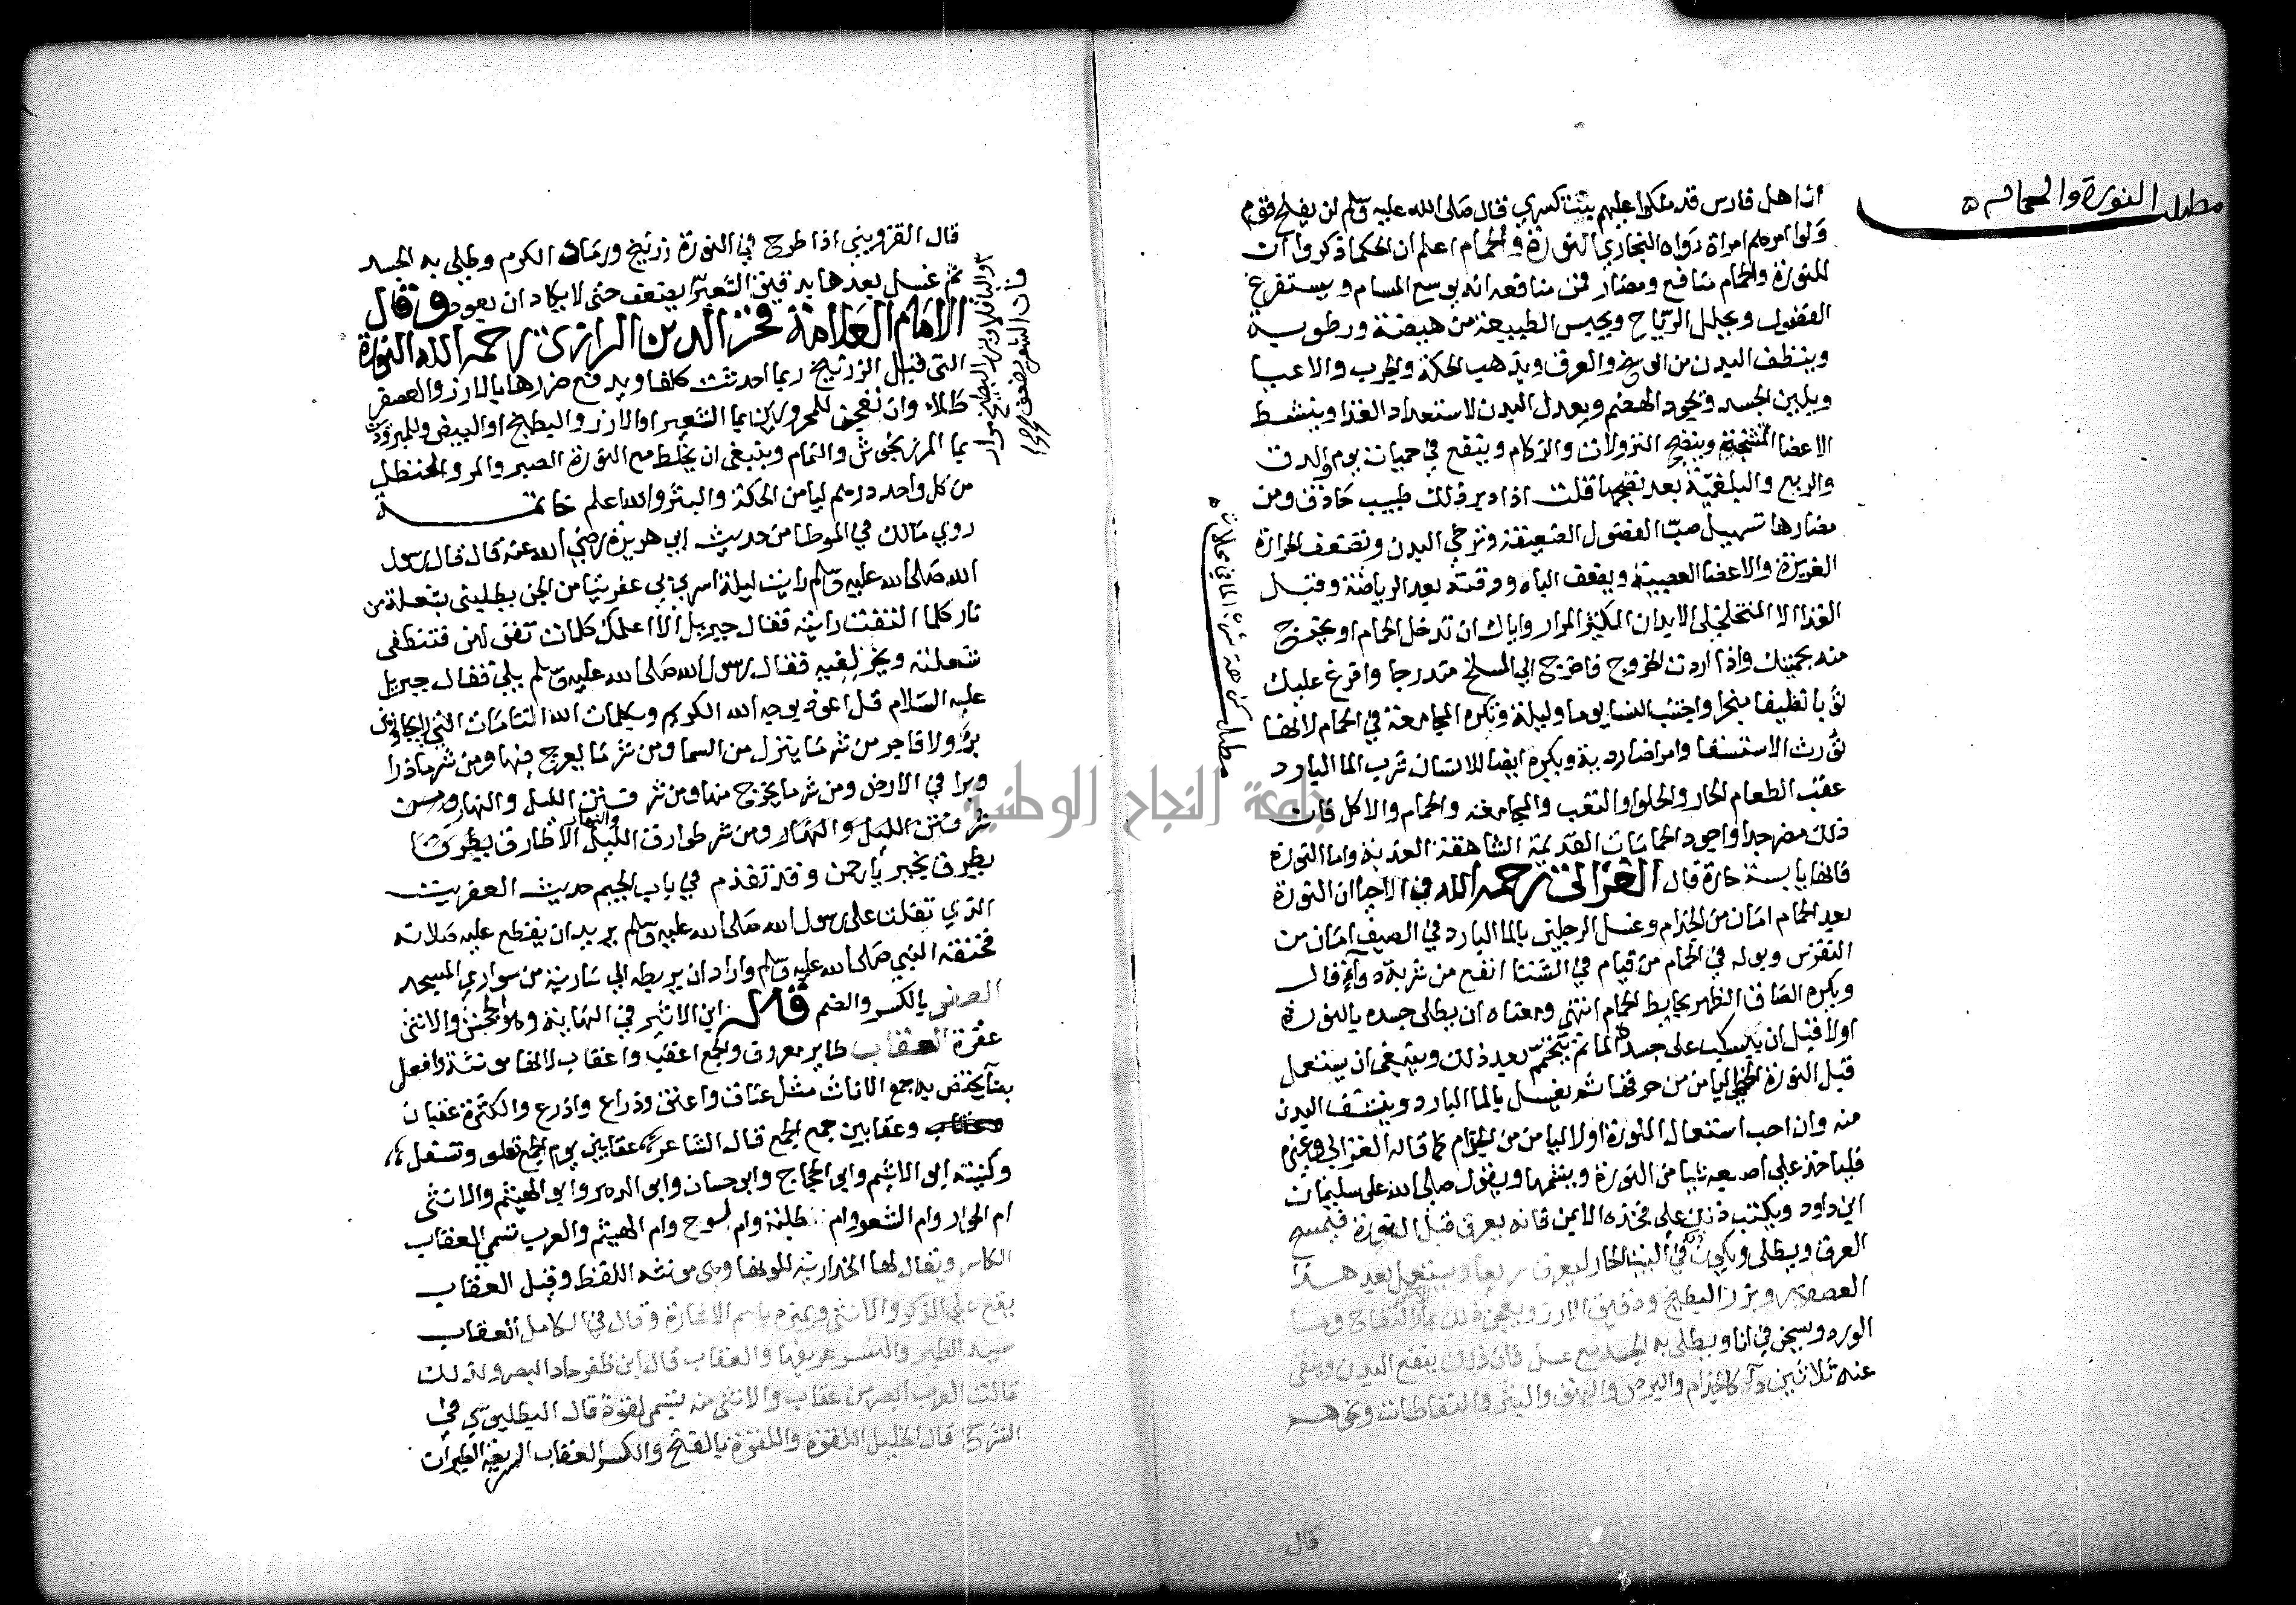 مطلب النورة والحمام
ان اهل فارس قد ملكوا عليهم بنت كسري قال صلى الله عليه وسلم لن يفلح قوم
ولوا امرهم امراة رواه البخاري النورة والحمام اعلم ان الحكما ذكروا ان
للنورة والحمام منافع ومضار فمن منافعه انه يوسع المسام ويستفرغ
الفضول ويحلل الرياح ويحبس الطبيعة من هيضة ورطوبة
وينظف البدن من الوسخ والعرق ويذهب الحكة والجرب والاعيا
ويلين الجسد ويجود الهضم ويعدل البدن لاستعداد الغذا وينشط
الاعضا المتشنجة وينضج النزولات والزكام وينفع في حميات يوم والدق
والربع والبلغمية بعد نضجها قلت اذا دبر ذلك طبيب حاذق ومن
مضارها تسهيل صب الفضول الضعيفة وترخي البدن وتضعف الحرارة
الغريزة والاعضا العصبية ويضعف الباه ووقته بعد الرياضة وقبل
الغذا الا المتخلخلي الابدان الكثير المرار واياك ان تدخل الحمام او تخرج
منه بحميتك واذا اردت الخروج فاخرج الي المسلخ متدرجا وافرغ عليك
ثوبا نظيفا مبخرا واجتنب النسا يوما وليلة وتكره المجامعة في الحمام لانها
تورث الاستسقا وامراضا ردية ويكره ايضا للانسان شرب الما البارد
عقب الطعام الحار والحلو والتعب والمجامعة والحمام والاكل فان
ذلك مضر جدا واجود الحمامات القديمة الشاهقة العذبة واما النورة
فانها يابسة حارة قال الغزالي رحمه الله في الاحيا ان النورة
بعد الحمام امان من الجذام وغسل الرجلين بالما البارد في الصيف امان من
النقرس وبوله في الحمام من قيام في الشتا انفع من شربة دواء قال
ويكره الصاق الظهر بحايط الحمام انتهي ومعناه ان يطلى جسده بالنورة
اولا قبل ان يسكب على جسده الما ثم يتحمم بعد ذلك وينبغي ان يستعمل
قبل النورة الخطمي ليامن من حرقها ثم يغسل بالما البارد وينشف البدن
منه وان احب استعمال النورة اولا ليامن من الجذام كما قاله الغزالي وغيره
فلياخذ علي اصبعه شيا من النورة ويشمها ويقول صلى الله على سليمان
ابن داود ويكتب ذلك على فخذه الايمن فانه يعرق قبل النورة فيمسح
العرق ويطلى ويكون في البيت الحار ليعرق سريعا ويستعمل بعد هذا
العصفر وبزر البطيخ ودقيق الارز ويعجن ذلك بما التفاح وما
الورد ويسخن في انا ويطلى به الجسد مع عسل فان ذلك ينفع البدن وينقى
عنه ثلاثين دا كالجذام والبرص والبهق والبثر والنفاطات ونحوها
مطلب كراهة شرب الما في محلات
قال
قال القزويني اذا طرح في النورة زرنيخ ورماد الكرم وطلي به الجسد
ثم غسل بعدها بدقيق الشعير يضعف حتى لا يكاد ان يعود وقال
الامام العلامة فخر الدين الرازي رحمه الله النورة
التي قبل الزرنيخ ربما احدثت كلفا ويدفع ضررها بالارز والعصفر
طلاء وان تعجن للمحرورين بما الشعير او الارز والبطيخ او البيض وللمبرودين
بما المرزنجوش والنمام وينبغي ان يخلط مع النورة الصبر والمر والحنظل
من كل واحد درهم ليامن الحكة والبثر والله اعلم خاتمة
روي مالك في الموطا من حديث ابي هريرة رضي الله عنه قال قال رسول
الله صلى الله عليه وسلم رايت ليلة اسري بي عفريتا من الجن يطلبني بشعلة من
نار كلما التفت رايته فقال جبريل الا اعلمك كلمات تقولهن فتنطفي
شعلته ويخر لفيه فقال رسول الله صلى الله عليه وسلم بلى فقال جبريل
عليه السلام قل اعوذ بوجه الله الكريم وبكلمات الله التامات التي لا يجاوزهن
بر ولا فاجر من شر ما ينزل من السما ومن شر ما يعرج فيها ومن شر ما ذرا
وبرا في الارض ومن شر ما يخرج منها ومن شر فتن الليل والنهار ومن
شر فتن الليل والنهار ومن شر طوارق الليل والنهار الا طارقا يطرق
بطرق بخير يارحمن وقد تقدم في باب الجيم حديث العفريت
الذي تفلت على رسول الله صلى الله عليه وسلم يريد ان يقطع عليه صلاته
فخنقه النبي صلى الله عليه وسلم واراد ان يربطه الي سارية من سواري المسجد
العفر بالكسر والضم قال ابن الاثير في النهاية وهو الجحش والانثى
عفرة العقاب طاير معروف والجمع اعقب واعقاب لانها مونثة وافعل
بنا يختص به جمع الاناث مثل عناق واعنق وذراع واذرع والكثرة عقبان
وعقابين جمع الجمع قال الشاعر عقابين يوم الجمع تعلو وتسفل
وكنيته ابو الاشيم وابو الحجاج وابو حسان وابو الدهر وابو الهيثم والانثى
ام الحوار وام الشعو وام طلبة وام لوح وام الهيثم والعرب تسمي العقاب
الكاسر ويقال لها الخدارية للونها وهي مونثة اللفظ وقيل العقاب
يقع على الذكر والانثى ويميزه باسم الاشارة وقال في الكامل العقاب
سيد الطير والنسر عريفها والعقاب قال ابن ظفر حاد البصر ولذلك
قالت العرب ابصر من عقاب والانثى منه تسمى لقوة قال البطليوسي في
الشرح قال الخليل اللقوة واللقوة بالفتح والكسر العقاب السريعة الطيران
جامعة النجاح الوطنية